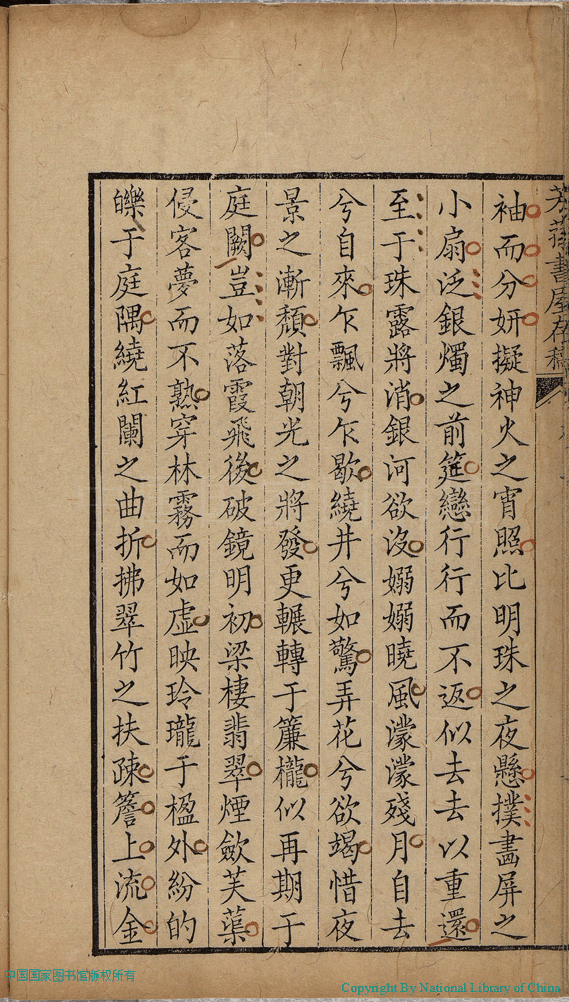 書屋存稿
袖而分妍擬神火之宵照比明珠之夜懸撲畵屏之
小扇泛銀燭之前筵戀行行而不返似去去以重還
至于珠露將消銀河欲沒嫋嫋曉風濛濛殘月自去
兮自來乍飄兮乍歇繞井兮如驚弄花兮欲竭惜夜
景之漸頽對朝光之將發更輾轉于簾櫳似再期于
庭闕豈如落霞飛後破鏡明初梁棲翡翠煙歛芙蕖
侵客夢而不熟穿林霧而如虛映玲瓏于楹外紛的
皪于庭隅繞紅闌之曲折拂翠竹之扶疎簷上流金
中国国家图书馆版权所有
Copyright By National Library of China